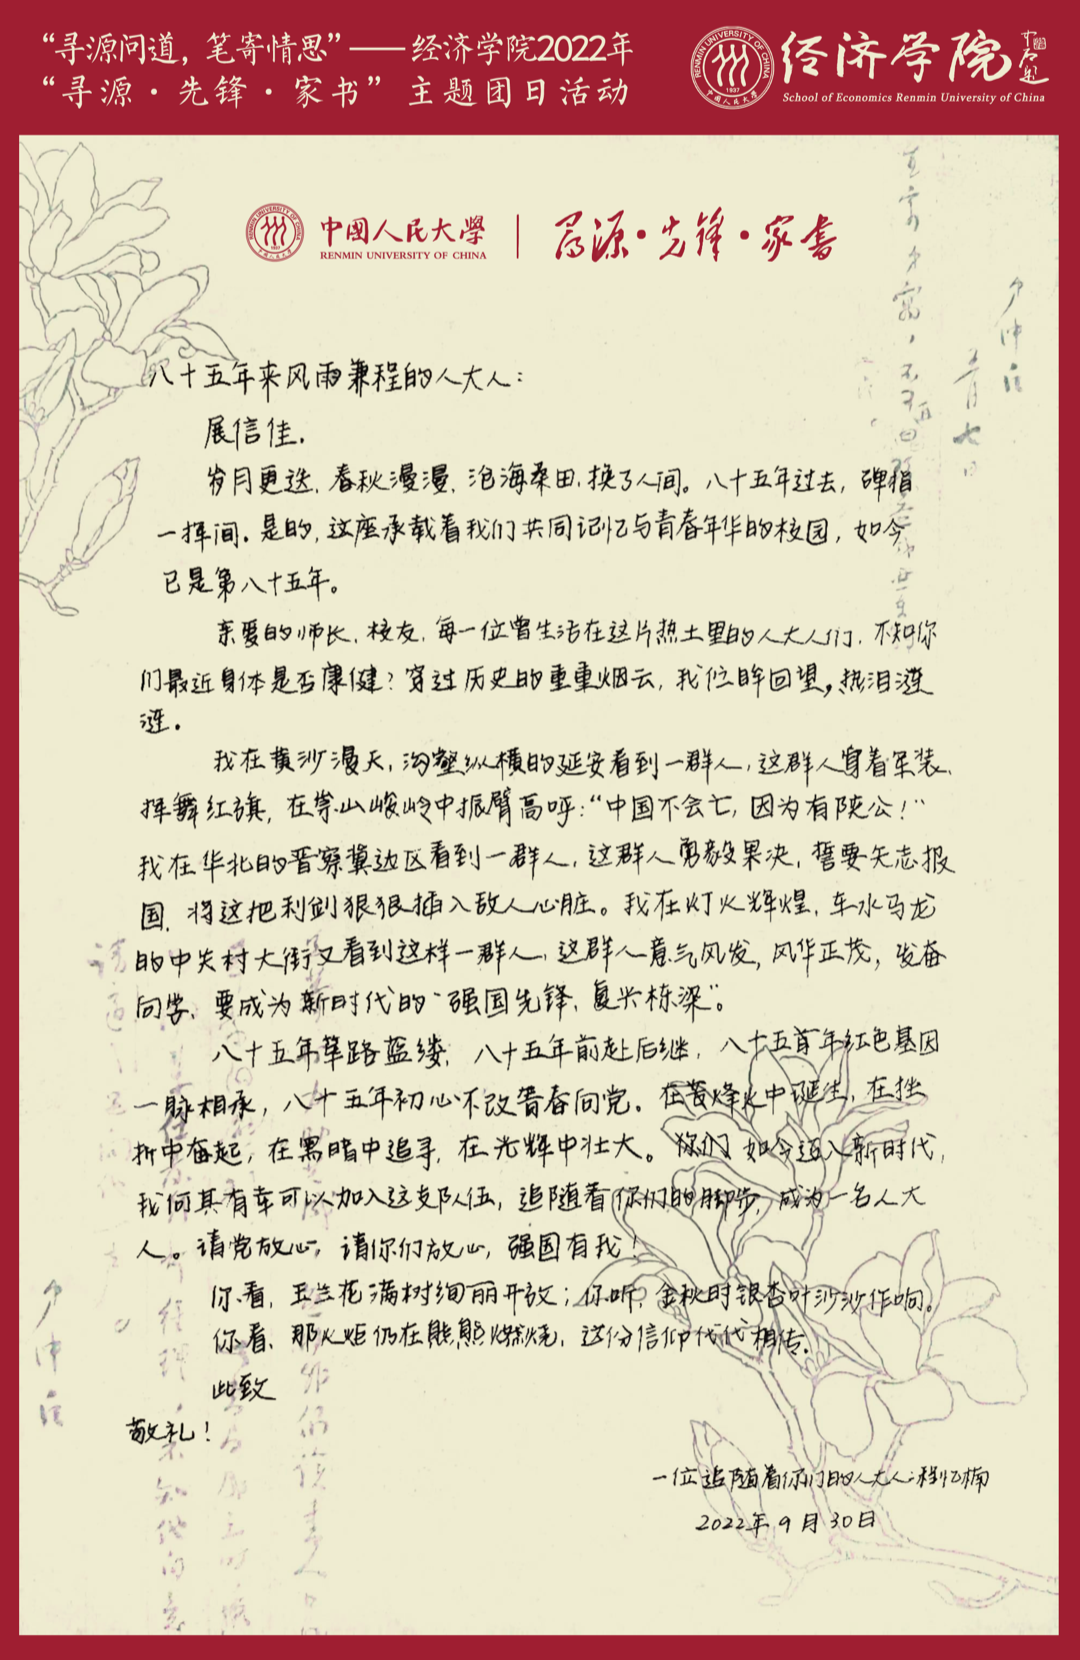 “寻源问道，笔寄情思”——经济学院2022年
“寻源·先锋·家书”主题团日活动
经济学院
School of Economics Renmin University of China
中國人民大學
RENMIN UNIVERSITY OF CHINA
寻源·先锋·家书
八十五年来风雨兼程的人大人：
展信佳.
岁月更迭，春秋漫漫，沧海桑田，换了人间。八十五年过去，弹指
一挥间.是的，这座承载着我们共同记忆与青春年华的校园，如今
已是第八十五年。
亲爱的师长，校友，每一位曾生活在这片热土里的人大人们，不知你
们最近身体是否康健？穿过历史的重重烟云，我伫眸回望，热泪涟
涟.
我在黄沙漫天，沟壑纵横的延安看到一群人，这群人穿着军装，
挥舞红旗，在崇山峻岭中振臂高呼：“中国不会亡，因为有陕公！”
我在华北的晋察冀边区看到一群人，这群人勇毅果决，誓要矢志报
国，将这把利剑狠狠插入敌人心脏。我在灯火辉煌，车水马龙
的中关村大街又看到这样一群人，这群人意气风发，风华正茂，发奋
向学，要成为新时代的“强国先锋，复兴栋梁”。
八十五年筚路蓝缕，八十五年前赴后继，八十五年红色基因
一脉相承，八十五年初心不改青春向党。在黄烽火中诞生，在挫
折中奋起，在黑暗中追寻，在光辉中壮大。你们如今迈入新时代，
我何其有幸可以加入这支队伍，追随着你们的脚步，成为一名人大
人。请党放心，请你们放心，强国有我！
你看，玉兰花满树绚丽开放；你听，金秋时银杏叶沙沙作响。
你看，那火炬仍在熊熊燃烧，这份信仰代代相传.
此致
敬礼！
一位追随着你们的人大人：程忆楠
2022年9月30日